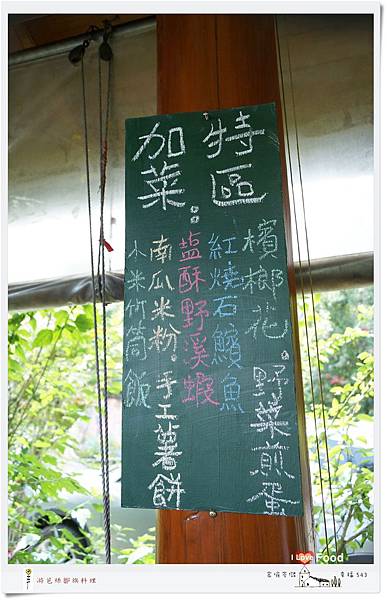 加菜：特區
檳榔花。野菜煎蛋
紅燒石鱝魚
塩酥野溪蝦
南瓜米粉。手工薯餅
小米竹筒飯
I Love Food
游芭絲鄒族料理
幸福 543